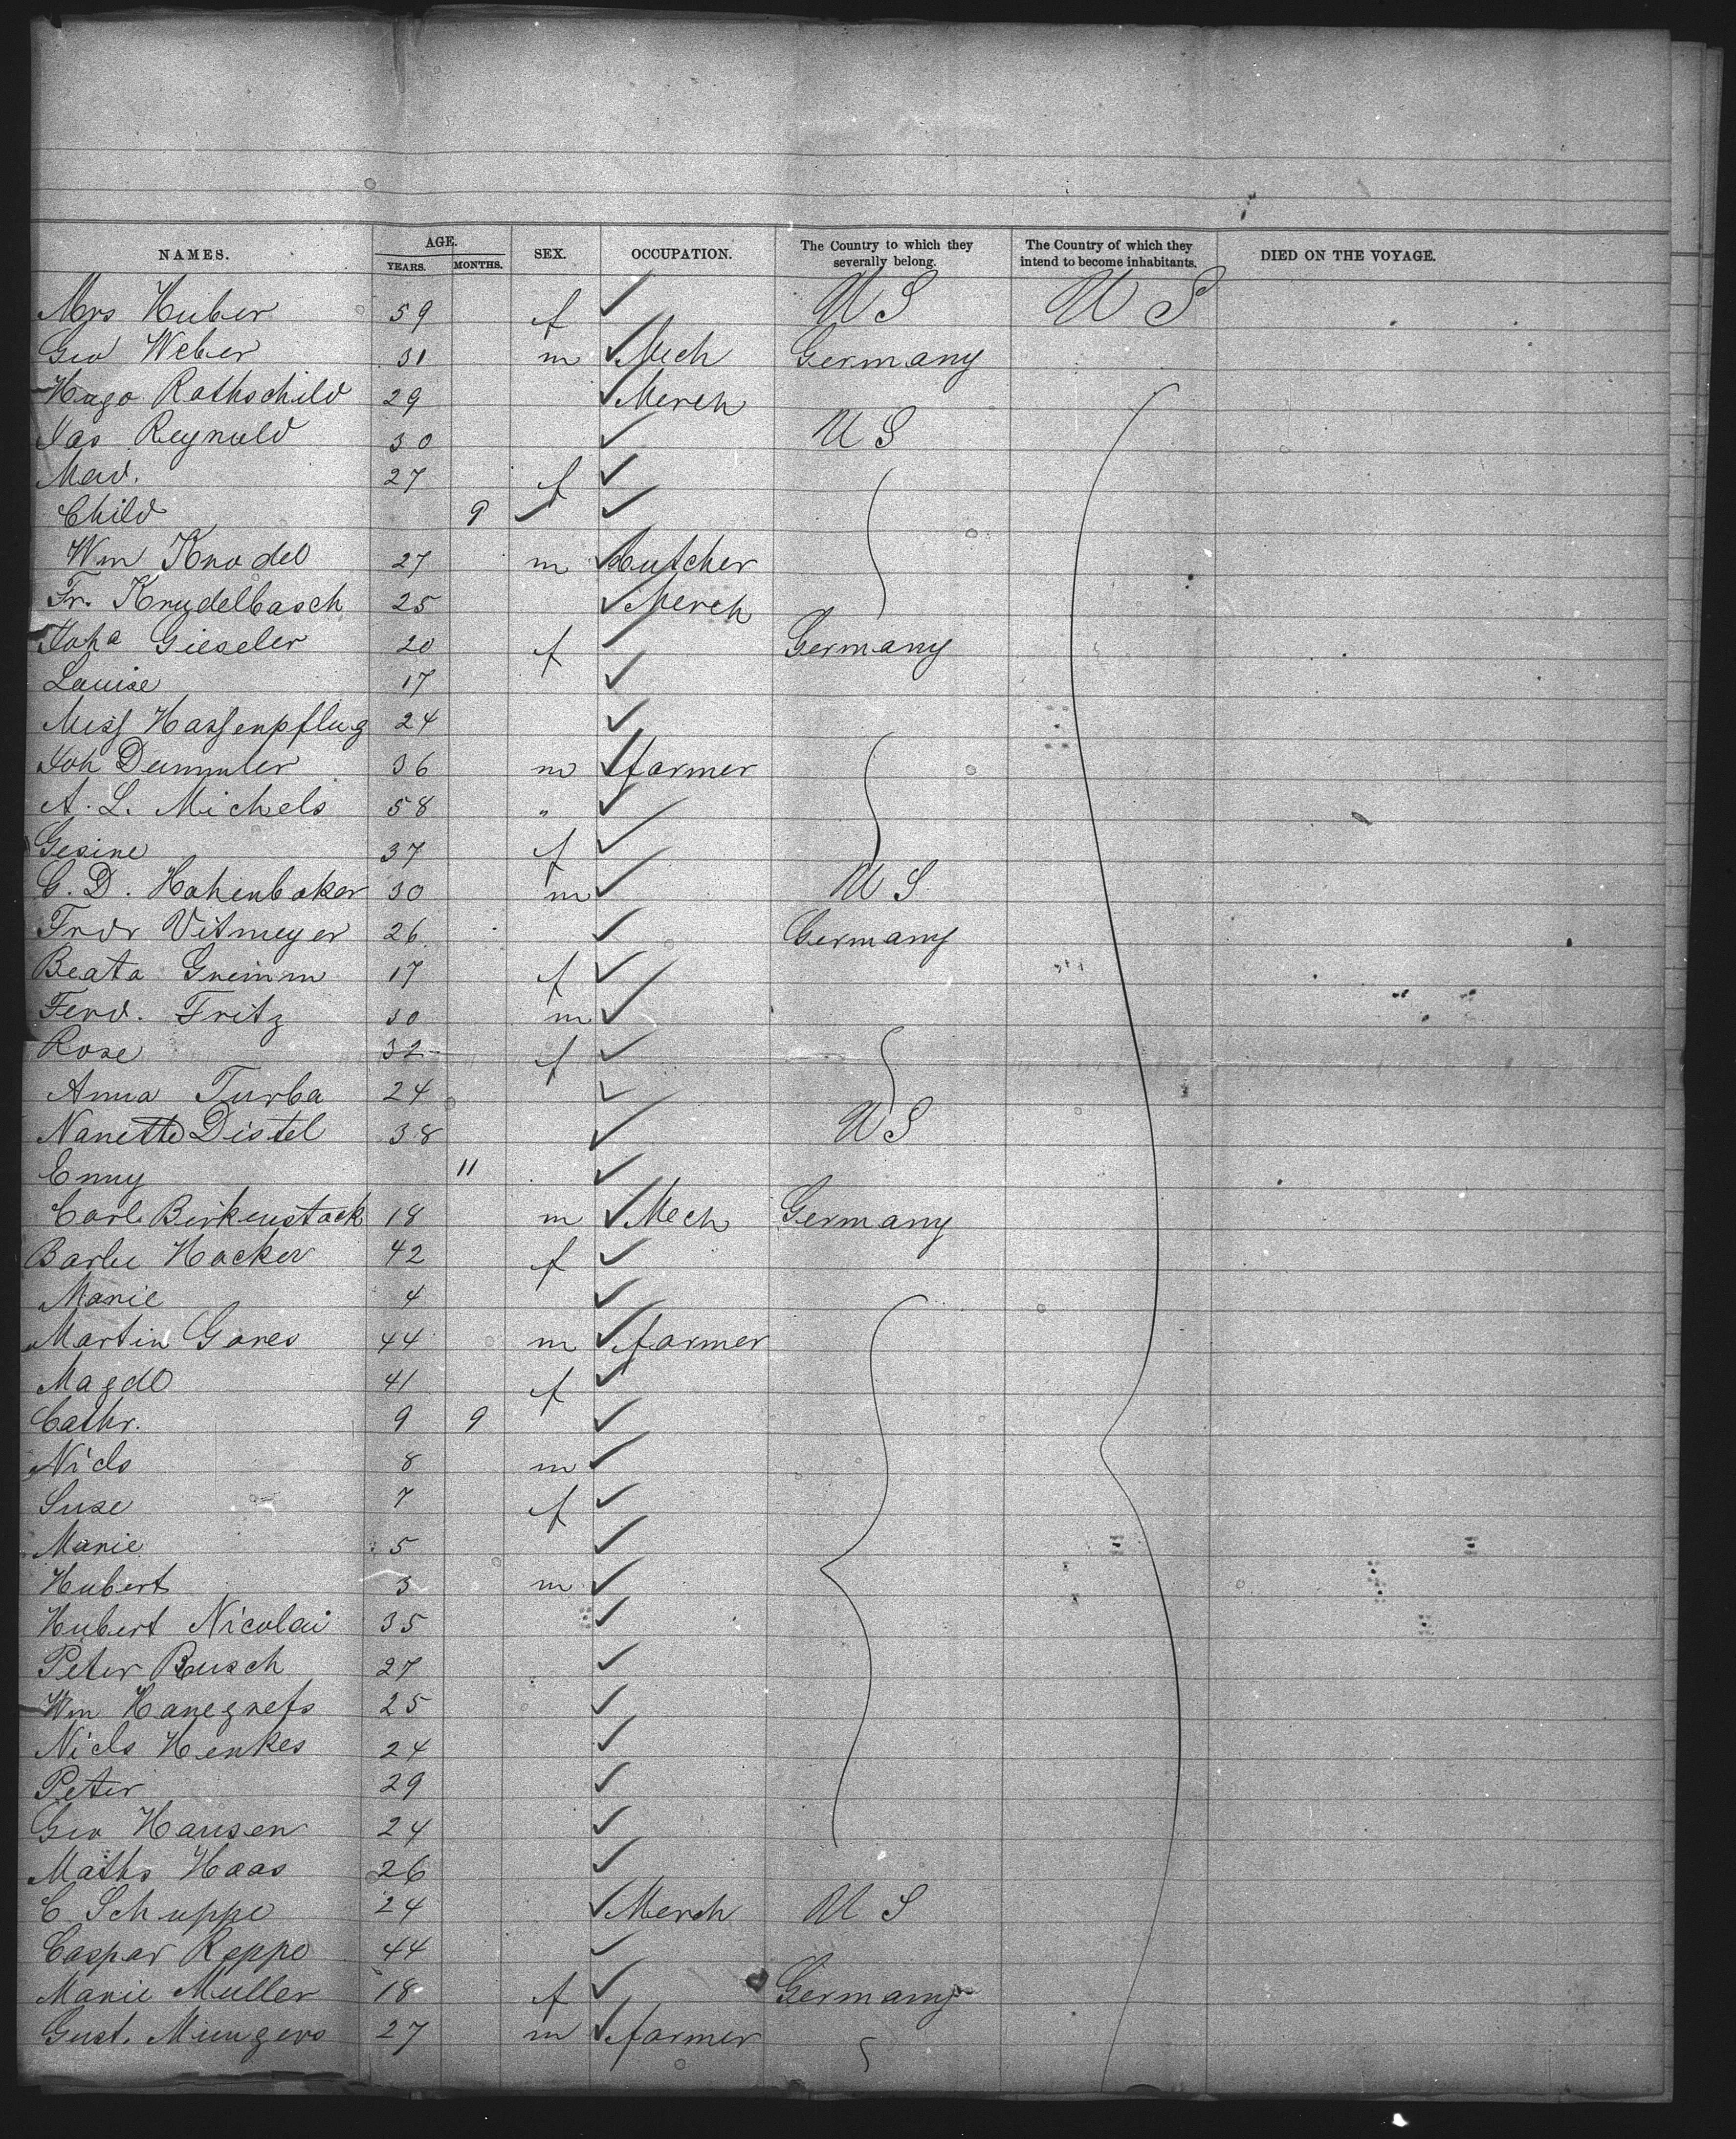 NAMES. AGE. YEARS. MONTHS. SEX. OCCUPATION. The Country to which they severally belong. The Country of which they intend to become inhabitants. DIED ON THE VOYAGE.
Mrs Huber 59 f U S U S
Geo Weber 31 m Mech Germany
Hugo Rothschild 29 Merch
Jas Reynold 30 U S
Mad. 27 f
Child 9
Wm Knodel 27 m butcher
Fr. Knydelbasch 25 Merch
Joha Gieseler 20 f Germany
Louise 17
Miss Hassenpflug 24
Joh Dummler 36 m farmer
A. L. Michels 58 "
Gesine 37 f
G. D. Hohenbaker 30 m U S
Fndr Vitmeyer 26 Germany
Beata Greimm 17 f
Ferd. Fritz 30 m
Rose 32 f
Anna Turba 24
Nanette Distel 38 U S
Enny 11
Carl Birkenstock 18 m Mech Germany
Barbe Hocker 42 f
Marie 4
Martin Gores 44 m farmer
Magd 41 f
Cathr. 9 9
Nicls 8 m
Suse 7 f
Marie 5
Hubert 3 m
Hubert Nicolai 35
Peter Busch 27
Wm Hanegrefs 25
Nicls Henkes 24
Peter 29
Geo Hansen 24
Maths Haas 26
C Schuppe 24 Merch U S
Caspar Roppe 44
Marie Muller 18 f Germany
Gust. Mungers 27 m farmer